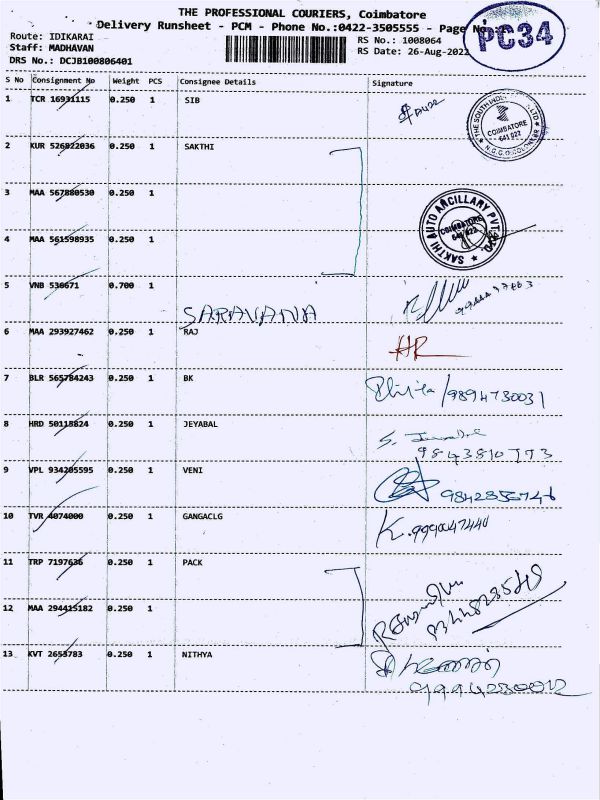 THE PROFESSIONAL COURIERS, Coimbatore
Delivery Runsheet - PCM - Phone No.:0422-3505555 - Page No
PC34
Route: IDIKARAI
Staff: MADHAVAN
DRS No.: DCJB100806401
RS No.: 1008064
RS Date: 26-Aug-2022
S No Consignment No Weight PCS Consignee Details Signature
1 TCR 16931115 0.250 1 SIB
COIMBATORE
641 022
2 KUR 526822036 0.250 1 SAKTHI
3 MAA 567880530 0.250 1
SAKTHI AUTO ANCILLARY PVT
COIMBATORE
641 022
4 MAA 561598935 0.250 1
5 VNB 530671 0.700 1
SARAVANA
6 MAA 293927462 0.250 1 RAJ
HR
7 BLR 565784243 0.250 1 BK
9894730031
8 HRD 50115824 0.250 1 JEYABAL
9843810773
9 VPL 934205595 0.250 1 VENI
10 TVR 4074000 0.250 1 GANGACLG
11 TRP 7197636 0.250 1 PACK
12 MAA 294415182 0.250 1
13 KVT 2653783 0.250 1 NITHYA